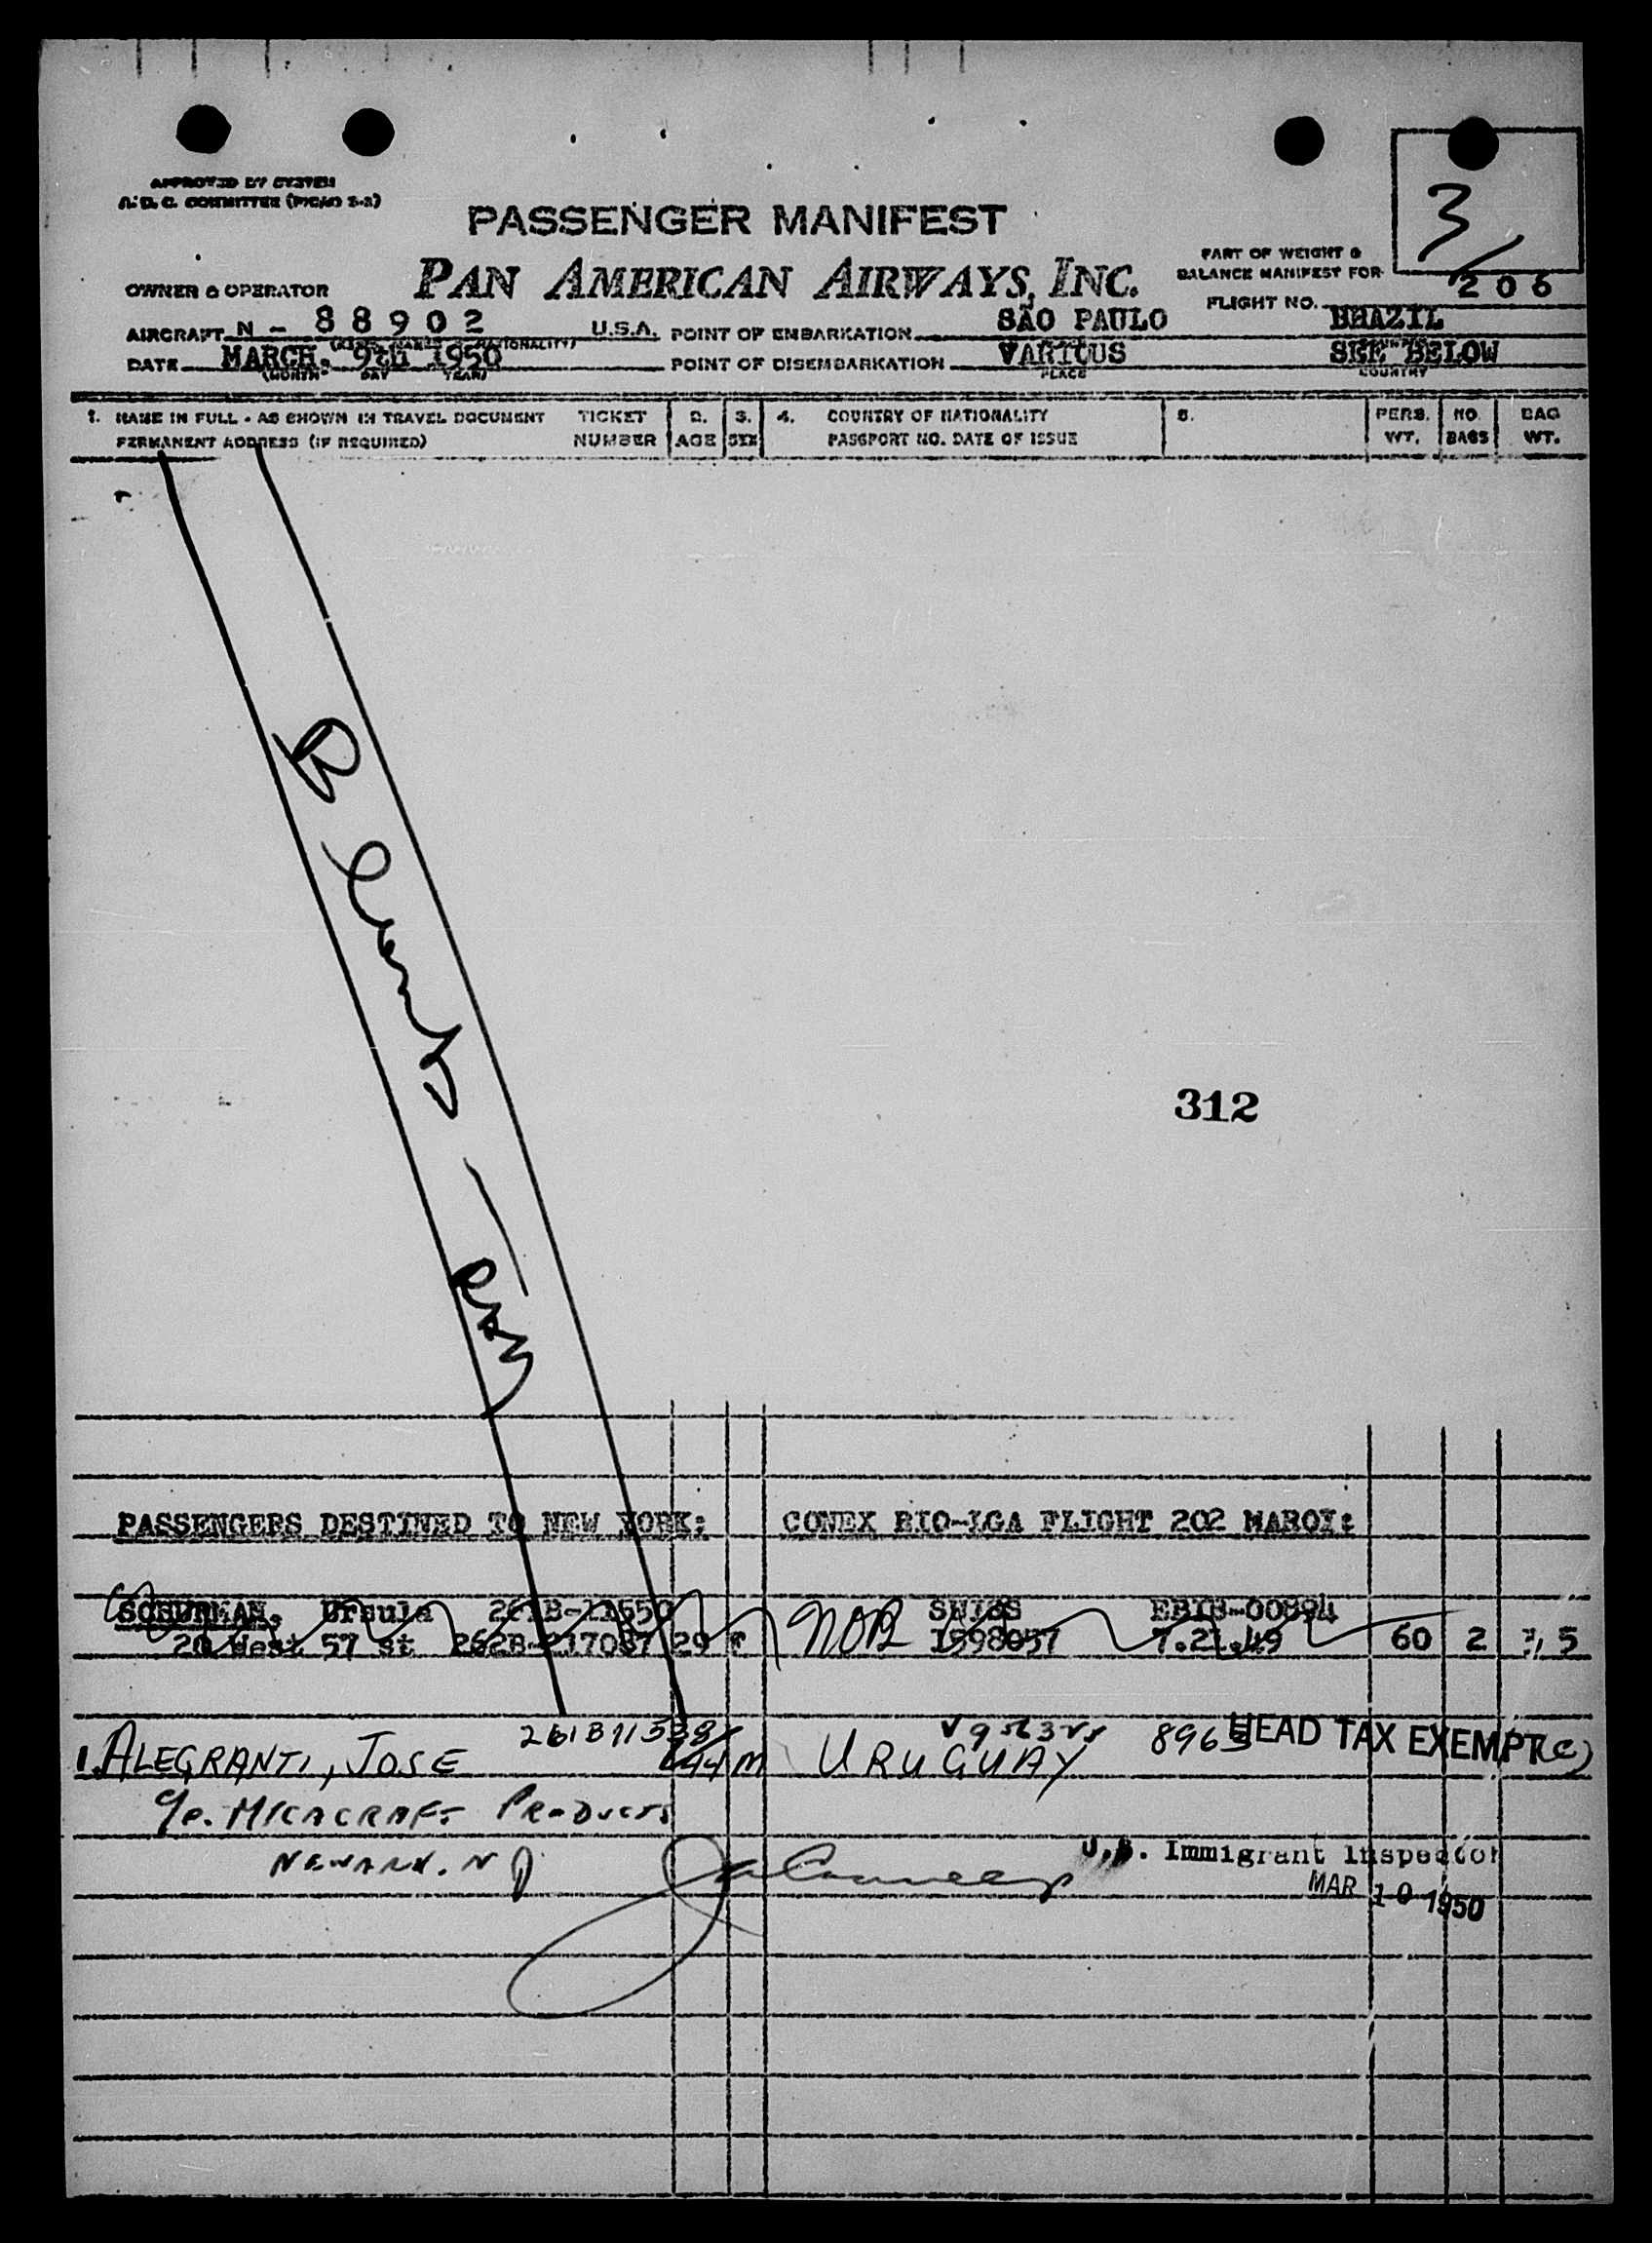 APPROVED BY SYSTEM
A.D.C. COMMITTEE (PICAO 2-2)
3
PASSENGER MANIFEST
PAN AMERICAN AIRWAYS, INC.
PART OF WEIGHT &
BALANCE MANIFEST FOR
FLIGHT NO. 206
OWNER & OPERATOR
AIRCRAFT N - 88902 U.S.A. POINT OF EMBARKATION SÃO PAULO BRAZIL
DATE MARCH, 9th 1950 POINT OF DISEMBARKATION VARIOUS SEE BELOW
(MONTH DAY YEAR) PLACE COUNTRY
1. NAME IN FULL - AS SHOWN IN TRAVEL DOCUMENT TICKET 2. 3. 4. COUNTRY OF NATIONALITY 5. PERS. NO. BAG
PERMANENT ADDRESS (IF REQUIRED) NUMBER AGE SEX PASSPORT NO. DATE OF ISSUE WT. BAGS WT.
312
PASSENGERS DESTINED TO NEW YORK: CONEX RIO-LGA FLIGHT 202 MARQI:
Ursula 261B-11550 SWISS EBIB-00894
20 West 57 st 262B-217087 29 F NOB 1598057 7.21.49 60 2 5
261B11538 8965 HEAD TAX EXEMPT (C)
1. ALEGRANTI, JOSE 44 M URUGUAY
c/o. MICACRAFT PRODUCTS
NEWARK. N J
U.S. Immigrant Inspector
MAR 10 1950